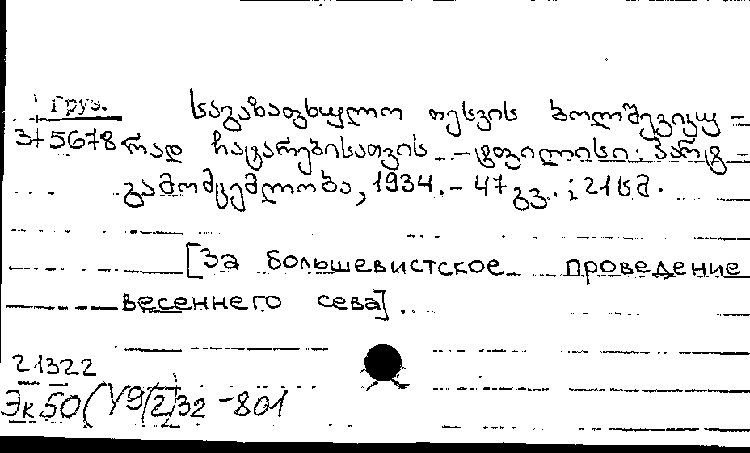 Груз.
საგაზაფხულო თესვის ბოლშევიკუ-
3+5678 რად ჩატარებისათვის. - ტფილისი: პარტ-
გამომცემლობა, 1934. - 47 გვ.; 21 სმ.
[За большевистское проведение
весеннего сева].
21322
Эк50(У9(2)32-801